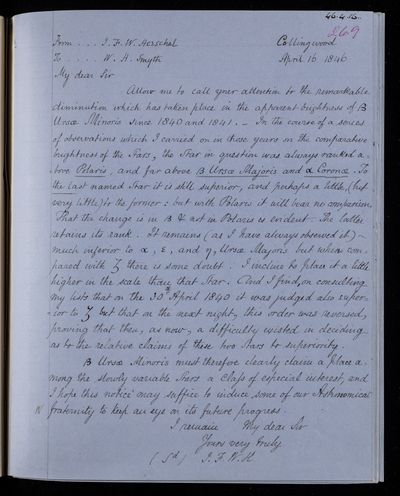 46.4.16.
269
From . . . J. F. W. Herschel Collingwood
To . . . . W. H. Smyth April 16 1846
My dear Sir
Allow me to call your attention to the remarkable
diminution which has taken place in the apparent brightness of β
Ursæ Minoris since 1840 and 1841. – In the course of a series
of observations which I carried on in those years on the comparative
brightness of the Stars, the Star in question was always ranked a-
bove Polaris, and far above β Ursæ Majoris and α Coronæ. To
the last named Star it is still superior, and perhaps a little, (but
very little) to the former: but with Polaris it will bear no comparison
That the change is in β & not in Polaris is evident. The latter
retains its rank. It remains (as I have always observed it) –
much inferior to α, ε, and η, Ursæ Majoris but when com-
pared with ζ there is some doubt. I incline to place it a little
higher in the scale than that Star. And I find, on consulting
my lists that on the 30 April 1840 it was judged also super-
-ior to ζ but that on the next night, this order was reversed,
proving that then, as now, a difficulty existed in deciding
as to the relative claims of these two Stars to superiority.
β Ursæ Minoris must therefore clearly claim a place a-
mong the slowly variable Stars a class of especial interest, and
I hope this notice may suffice to induce some of our Astronomical
fraternity to keep an eye on its future progress.
I remain My dear Sir
Yours very truly
(Sd) J. F. W. H